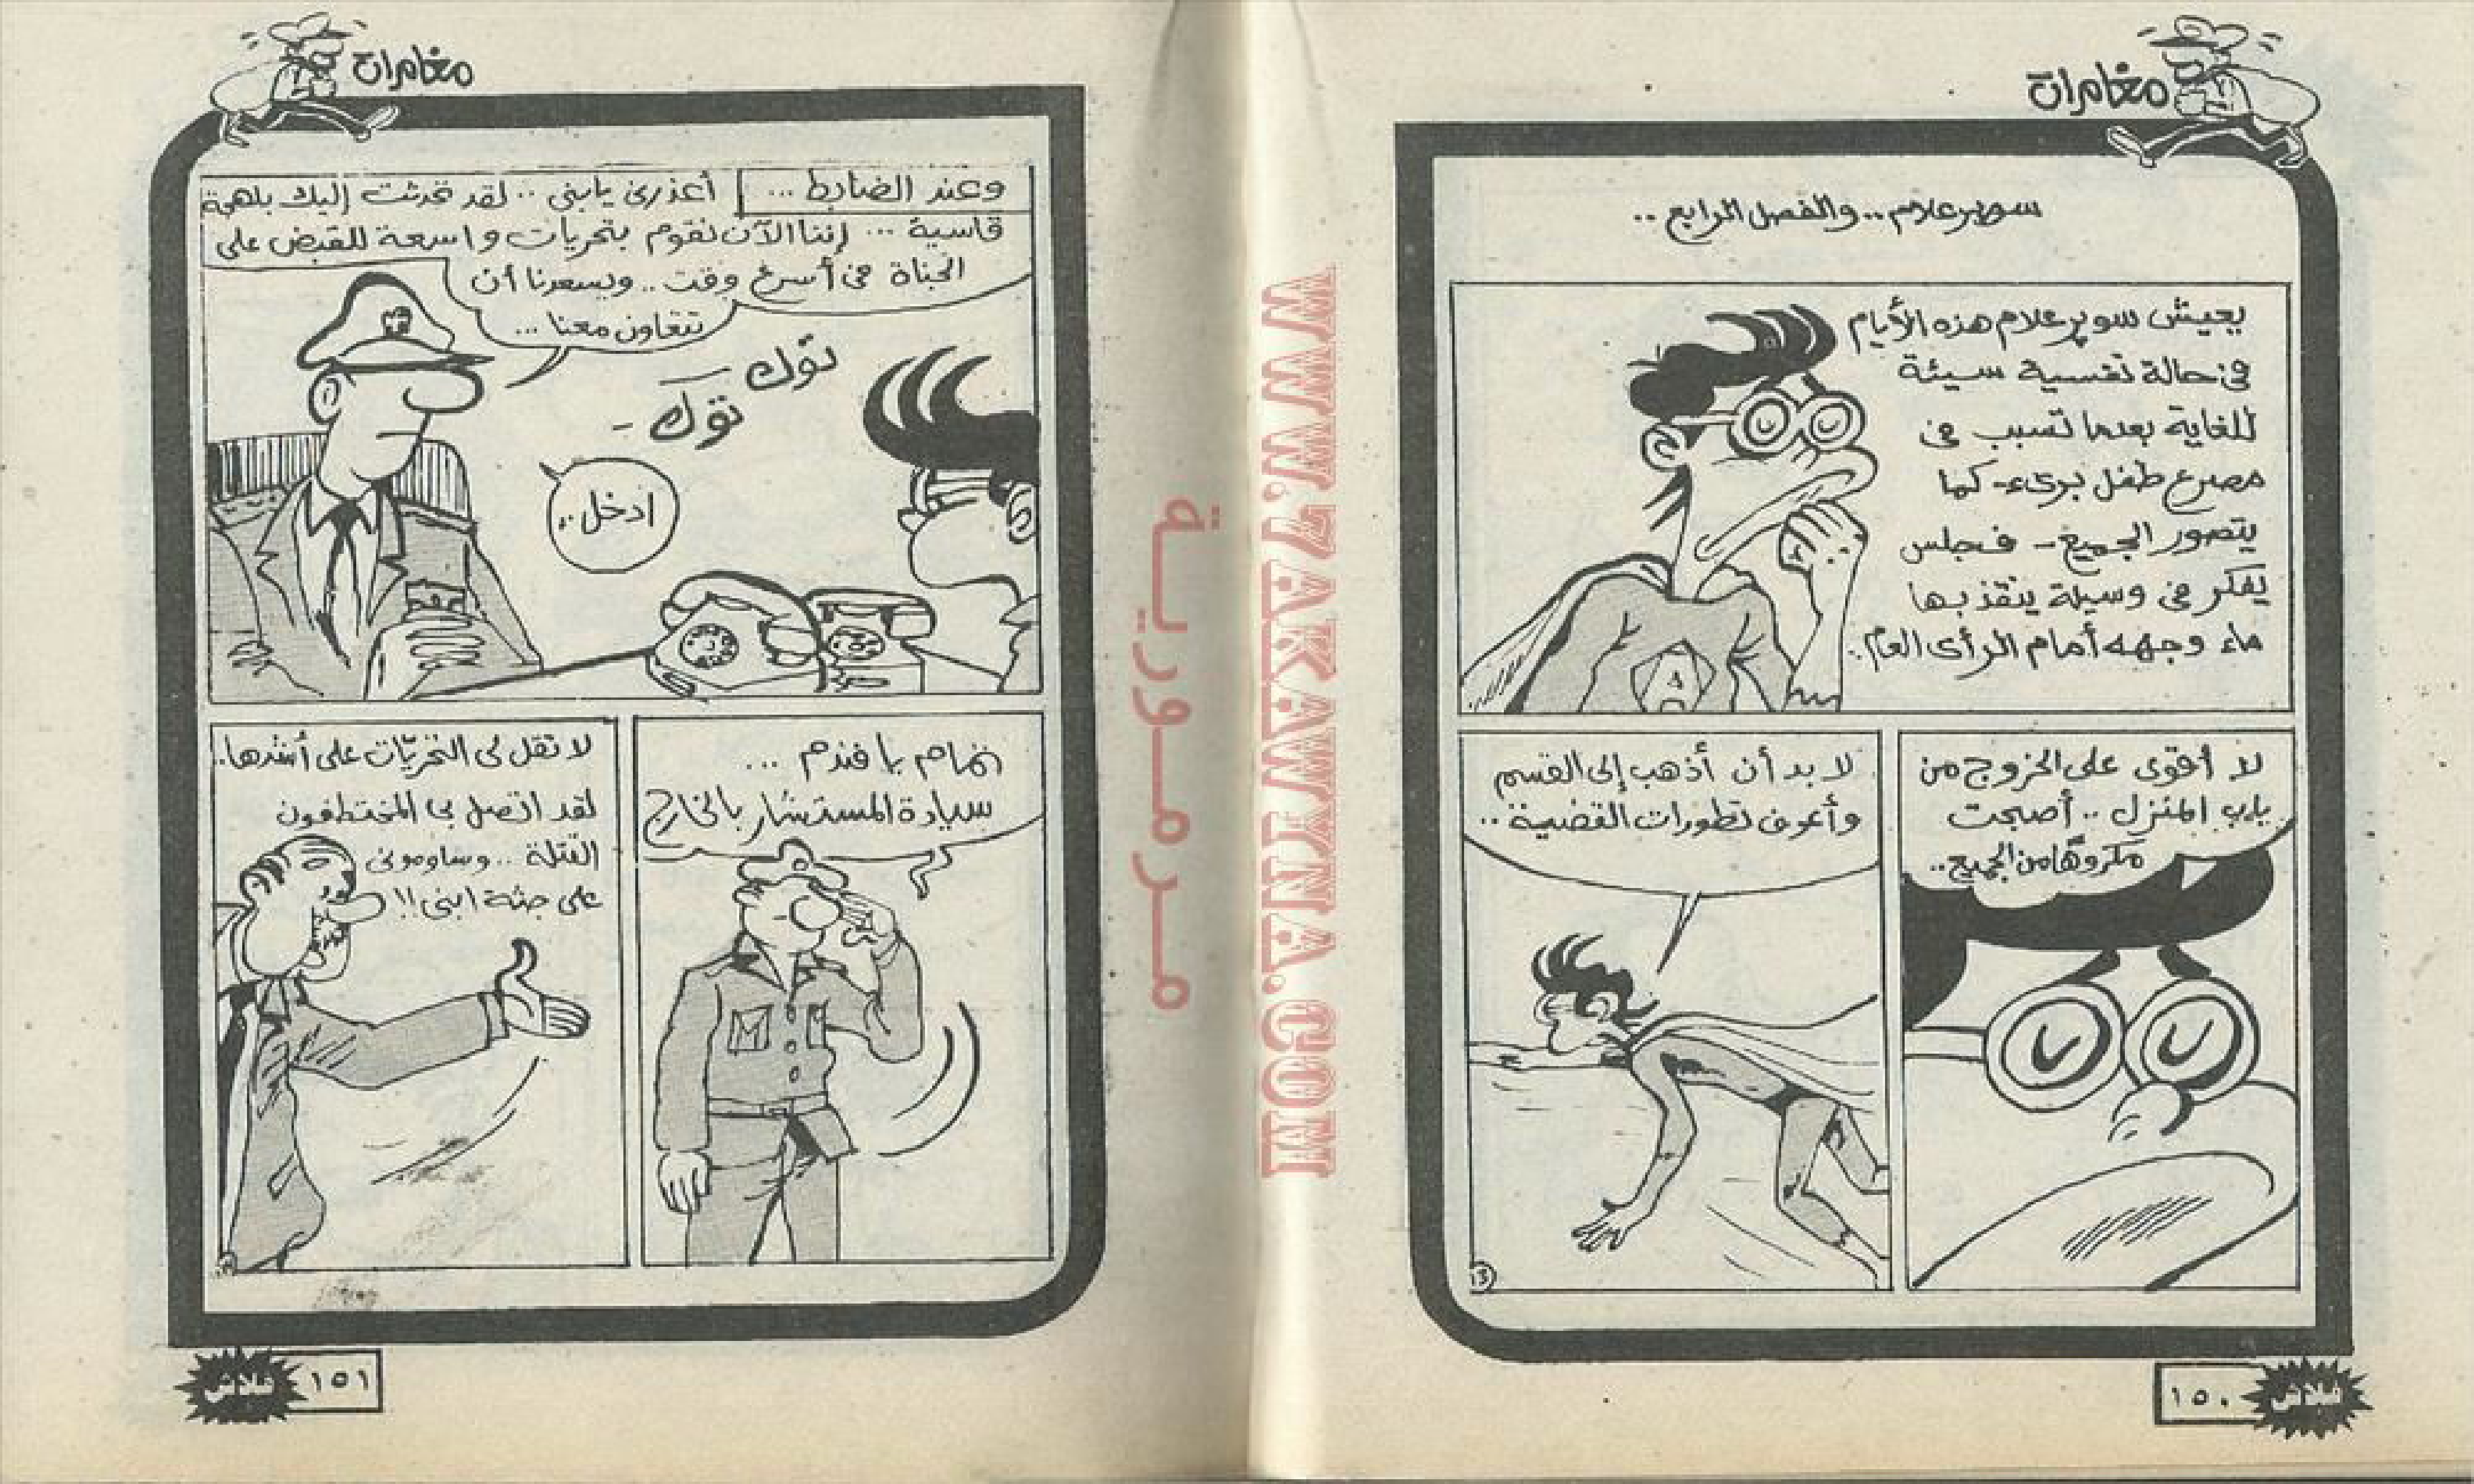 مغامرات
سوبر علام .. والفصل الرابع ..
يعيش سوبر علام هذه الأيام
فى حالة نفسية سيئة
للغاية بعدما تسبب فى
مصرع طفل برىء - كما
يتصور الجميع - فجلس
يفكر فى وسيلة ينقذ بها
ماء وجهه أمام الرأى العام ..
لا أقوى على الخروج من
باب المنزل .. أصبحت
مكروهًا من الجميع ..
لا بد أن أذهب إلى القسم
وأعرف تطورات القضية ..
13
١٥٠
فلاش
مغامرات
وعند الضابط ...
أعذرنى يابنى .. لقد تحدثت إليك بلهجة
قاسية ... إننا الآن نقوم بتحريات واسعة للقبض على
الجناة فى أسرع وقت .. ويسعدنا أن
تتعاون معنا ...
توك -
توك -
ادخل ..
تمام يا فندم ...
سيادة المستشار بالخارج
لا تقل لى التحريّات على أشدها ..
لقد اتصل بى المختطفون
القتلة .. وساومونى
على جثة ابنى !!
١٥١
فلاش
WWW.ZAKAWYNA.COM
مرمورية